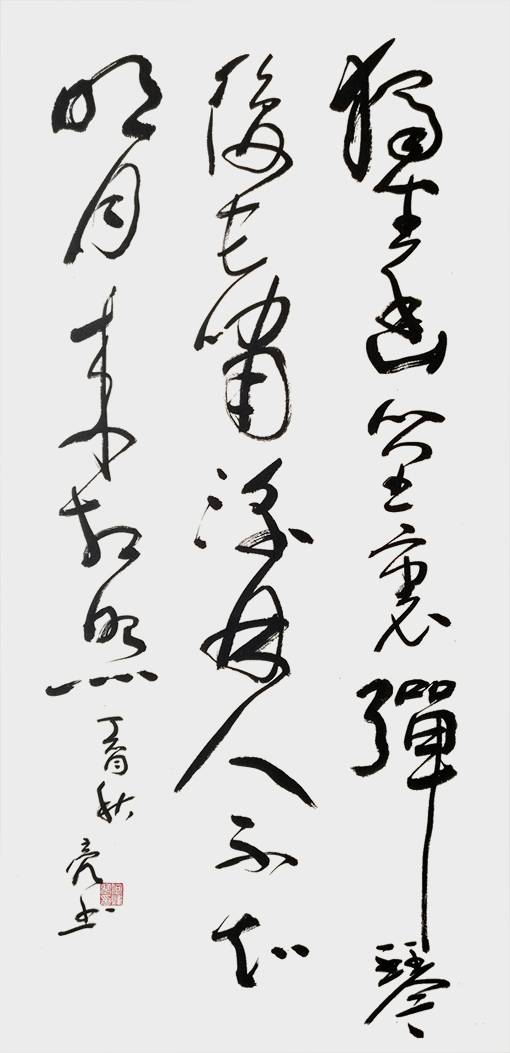 獨坐幽篁裏彈琴
復长嘯深林人不知
明月来相照
丁酉秋
亮书